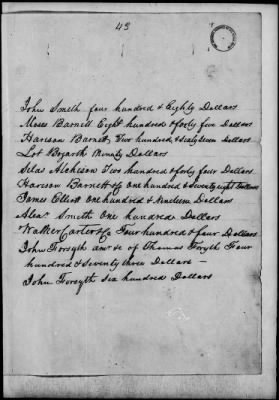 43
John Smith four hundred & Eighty Dollars
Moses Barnett Eight hundred & forty five Dollars
Harison Barnett Two hundred & Sixty Seven Dollars
Lot Bozarth Ninety Dollars
Silas Atchison Two hundred & forty four Dollars
Harison Barnett & Co one hundred & Seventy eight Dollars
James Elliott One hundred & Nineteen Dollars
Alexr Smith One hundred Dollars
Walker Carter & Co Four hundred & four Dollars
John Forsyth & of Thomas Forsyth Four
hundred & Seventy three Dollars —
John Forsyth Six hundred Dollars